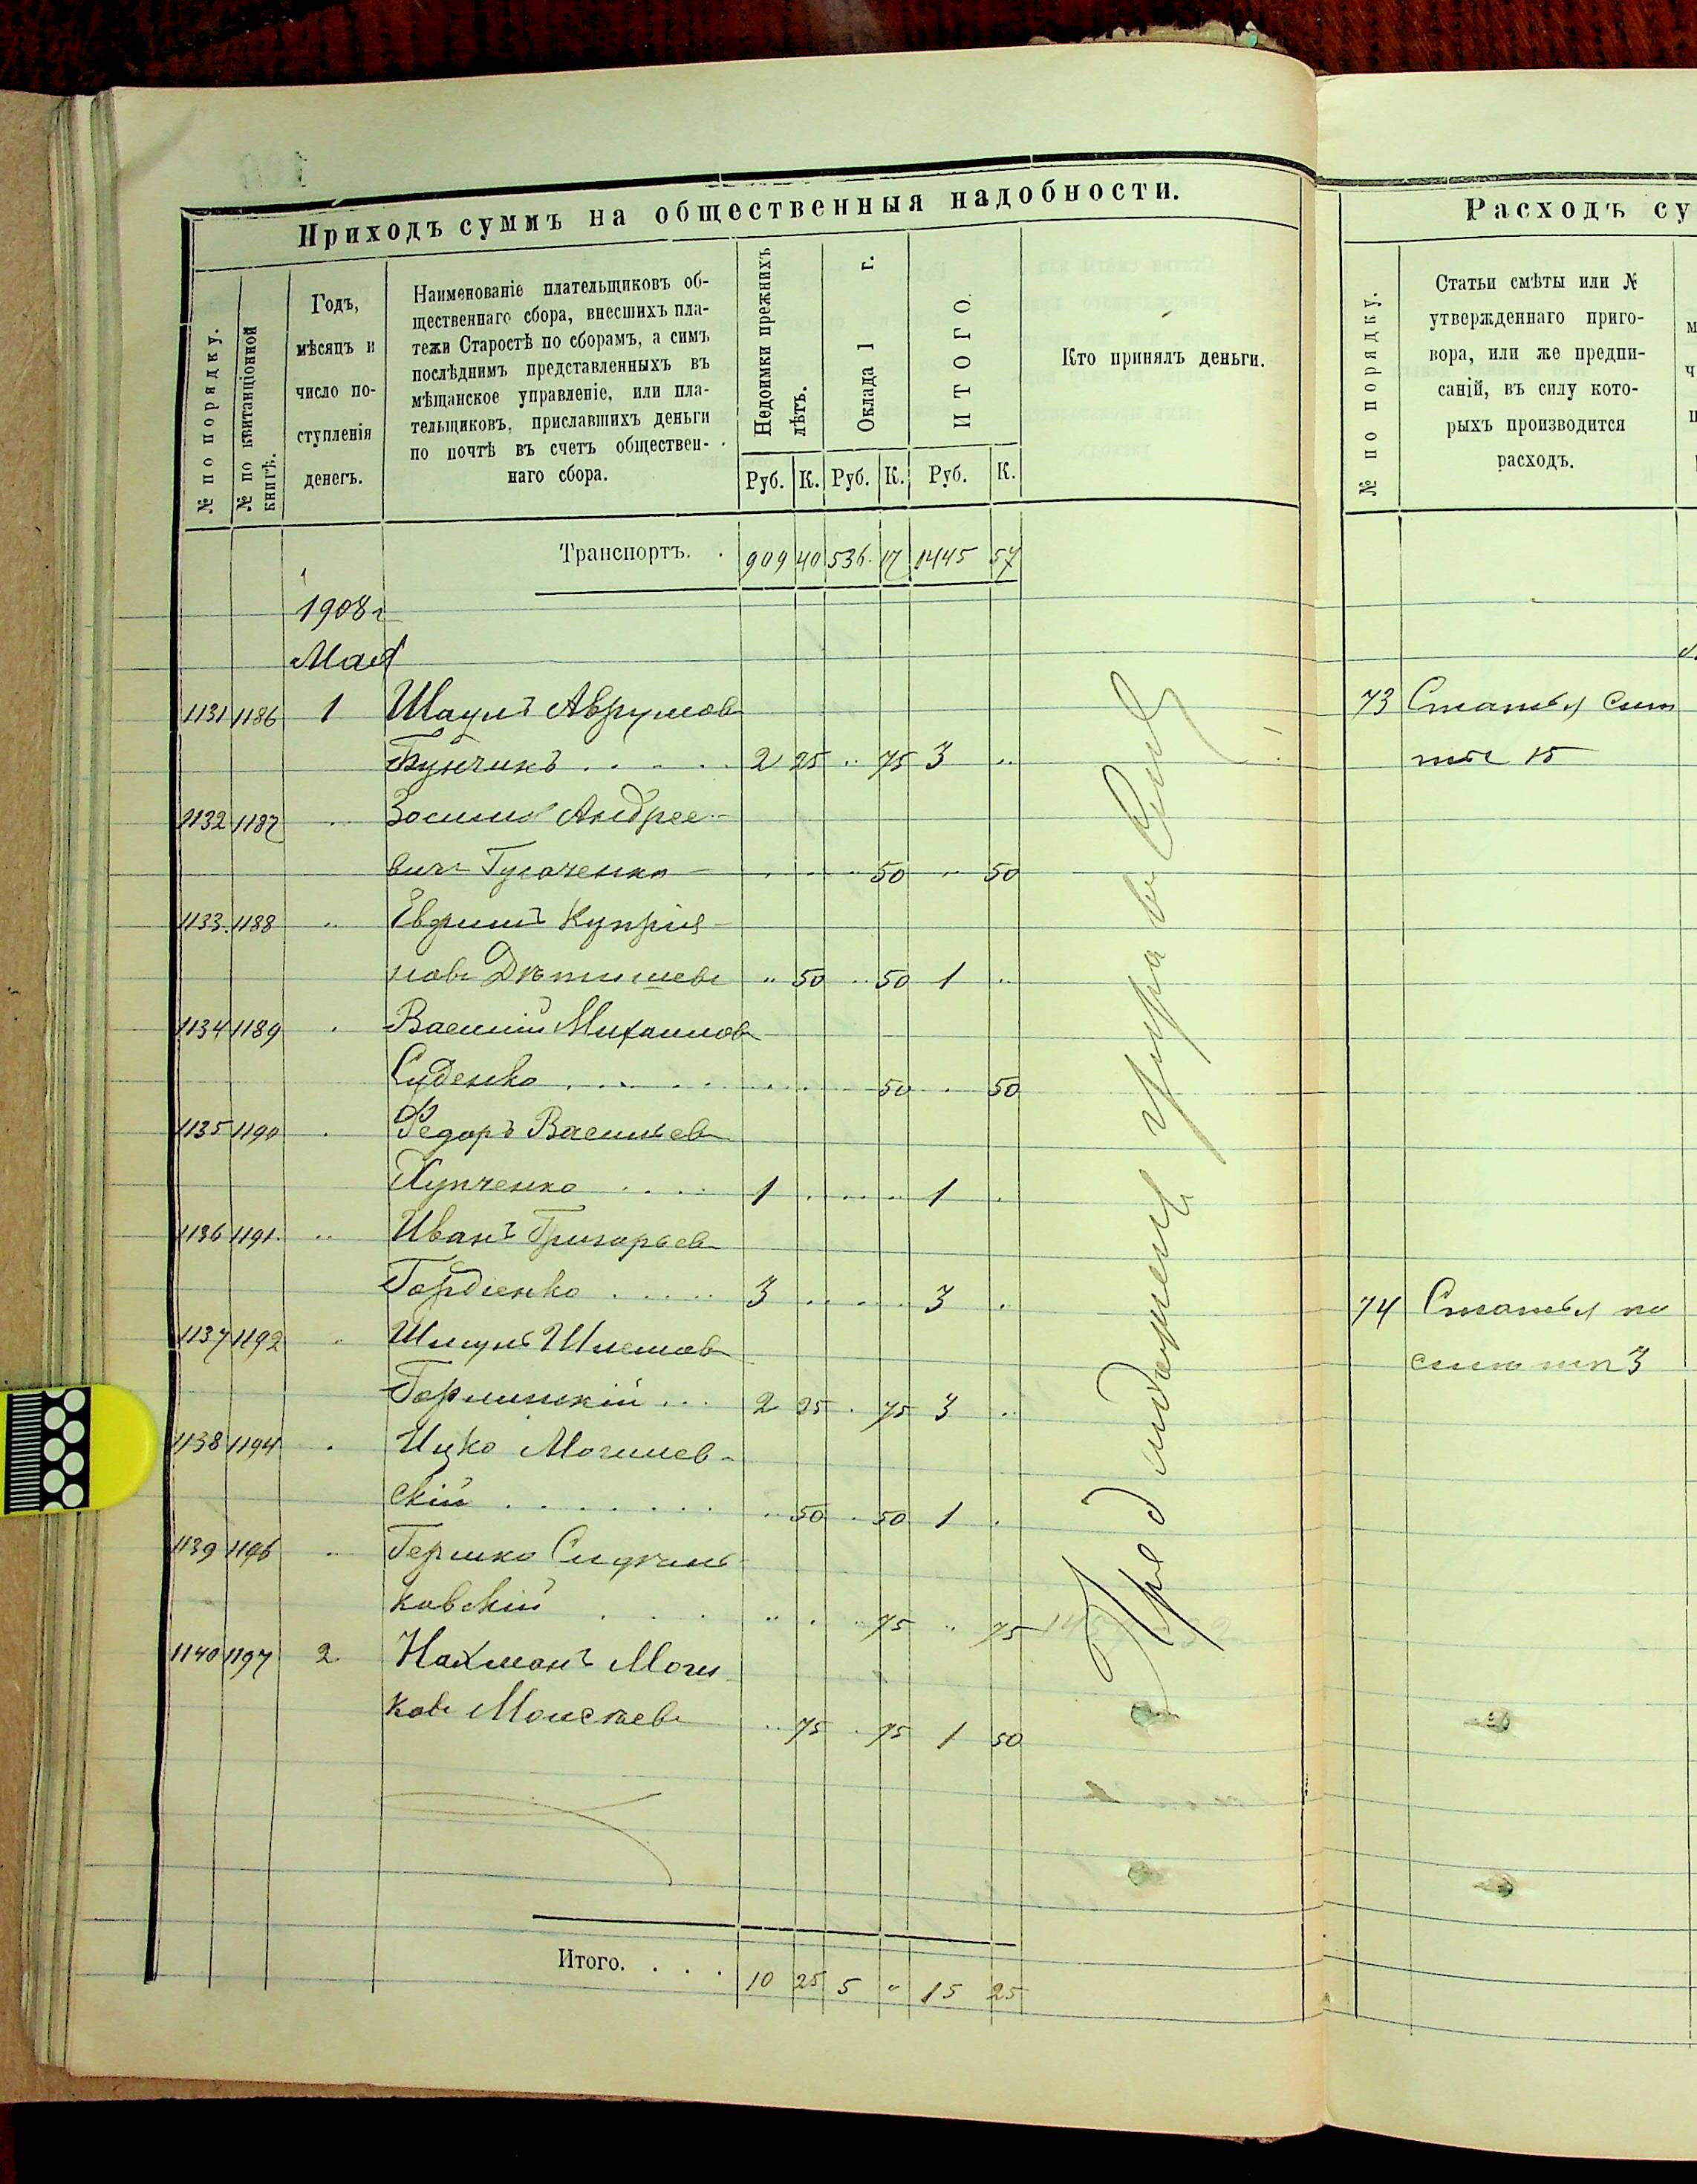 Приходъ суммъ на общественныя надобности.
№ по порядку.
№ по квитанціонной книгѣ.
Годъ,
мѣсяцъ и
число по-
ступленія
денегъ.
Наименованіе плательщиковъ об-
щественнаго сбора, внесшихъ пла-
тежи Старостѣ по сборамъ, а симъ
послѣднимъ представленныхъ въ
мѣщанское управленіе, или пла-
тельщиковъ, приславшихъ деньги
по почтѣ въ счетъ обществен-
наго сбора.
Недоимки прежнихъ
лѣтъ.
Оклада 1 г.
ИТОГО.
Кто принялъ деньги.
Руб. К. Руб. К. Руб. К.
Транспортъ. . 909 40 536 17 1445 57
1908 г
Мая
1131 1186 1 Шаулъ Аврумов
Бунчикъ . . . . . 2 25 .. 75 3 ..
1132 1187 .. Зосима Андрее-
вич Гугаченко .. 50 .. 50
1133 1188 .. Ефимъ Купрія-
нов .. 50 .. 50 1 ..
1134 1189 . Василій Михаилов
Суденко . . . . 50 . 50
1135 1190 . Федоръ Васильев
Купченко . . . . 1 . . . . 1 .
1136 1191 .. Иванъ Григорьев
Гордіенко . . . . . 3 . . . . 3 .
1137 1192 .. Шмуль
. . . 2 25 . 75 3 ..
1138 1194 . Ицко Могилев-
скій . . . . . . . 50 . 50 1 .
1139 1196 .. Гершко
ковскій . . . .. . .. 75 .. 75
1140 1197 2 Нахманъ Мош
ков Моисѣев .. 75 . 75 1 50
Итого. . . . 10 25 5 " 15 25
Расходъ су
№ по порядку.
Статьи смѣты или №
утвержденнаго приго-
вора, или же предпи-
саній, въ силу кото-
рыхъ производится
расходъ.
73 Статья смѣ
ты 15
74 Статья по
смѣтѣ 3